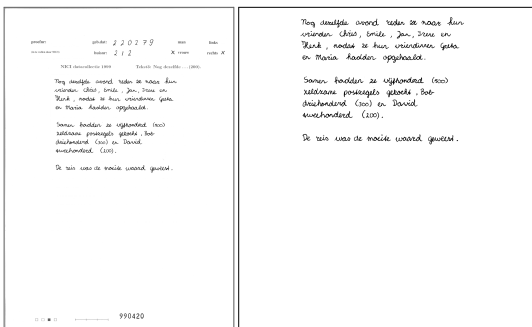 geboren: 220279
912
X vrouw
rechts X
NICI-datacollectie 1999
Tekst6: Nog dezelfde ... (200).
Nog dezelfde avond reden ze naar hun
vrienden Chris, Emile, Jan, Irene en
Henk, nadat ze hun vriendinnen Greta
en Maria hadden opgehaald.
Samen hadden ze vijfhonderd (500)
zeldzame postzegels gekocht, Bob
driehonderd (300) en David
tweehonderd (200).
De reis was de moeite waard geweest.
990420
Nog dezelfde avond reden ze naar hun
vrienden Chris, Emile, Jan, Irene en
Henk, nadat ze hun vriendinnen Greta
en Maria hadden opgehaald.
Samen hadden ze vijfhonderd (500)
zeldzame postzegels gekocht, Bob
driehonderd (300) en David
tweehonderd (200).
De reis was de moeite waard geweest.